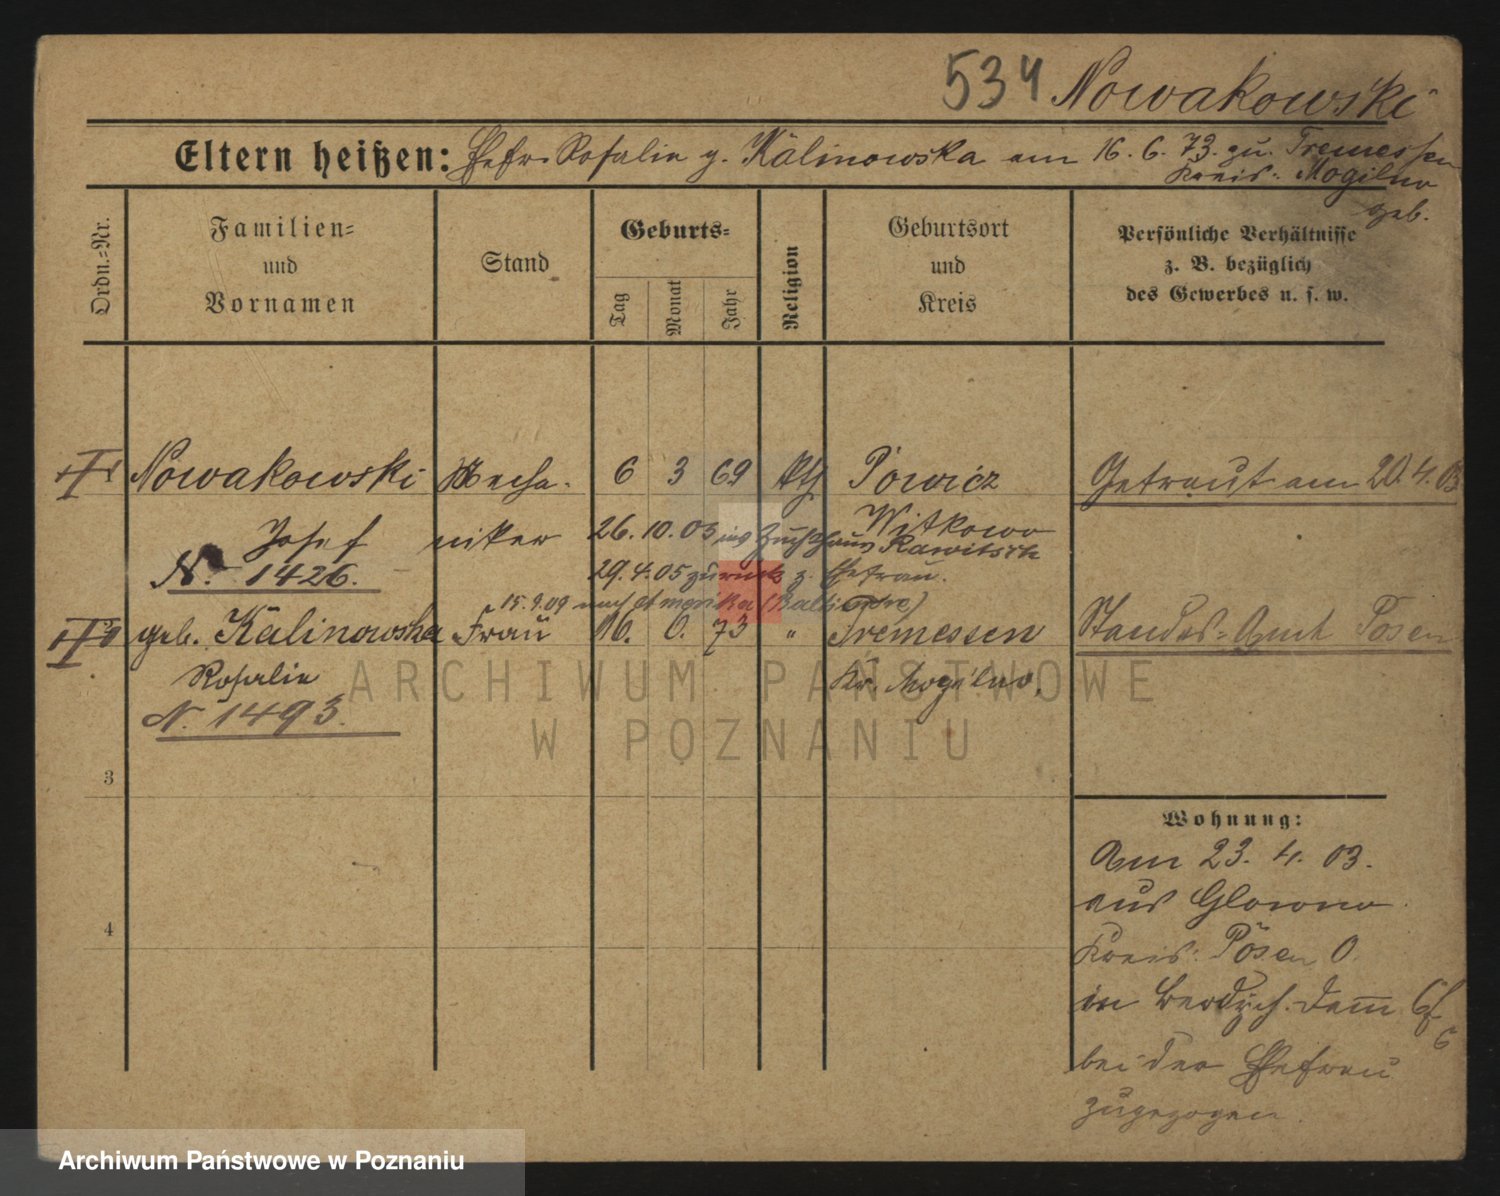 534 Nowakowski
Eltern heißen: Ehefr. Rosalie g. Kalinowska am 16. 6. 73. zu. Tremessen
Kreis: Mogilno
geb.
Ordn.=Nr.
Familien=
und
Vornamen
Stand
Geburts=
Tag
Monat
Jahr
Religion
Geburtsort
und
Kreis
Persönliche Verhältnisse
z. B. bezüglich
des Gewerbes u. s. w.
Nowakowski Mecha- 6 3 69 kth Powicz Getraut am 20. 4. 03
Josef niker 26. 10. 03 ins Zuchthaus Rawitsch
Witkowo
N. 1426.
29. 4. 05 zurück z. Ehefrau.
15. 9. 09 nach Amerika (Baltimore)
geb. Kalinowska Frau 16. 6. 73 " Tremessen Standes=Amt Posen
Rosalie Kr. Mogilno.
N. 1493.
3
4
Wohnung:
Am 23. 4. 03.
aus Glowno
Kreis: Posen O.
in Berdych. Damm 6
bei der Ehefrau
zugezogen.
ARCHIWUM PAŃSTWOWE
W POZNANIU
Archiwum Państwowe w Poznaniu